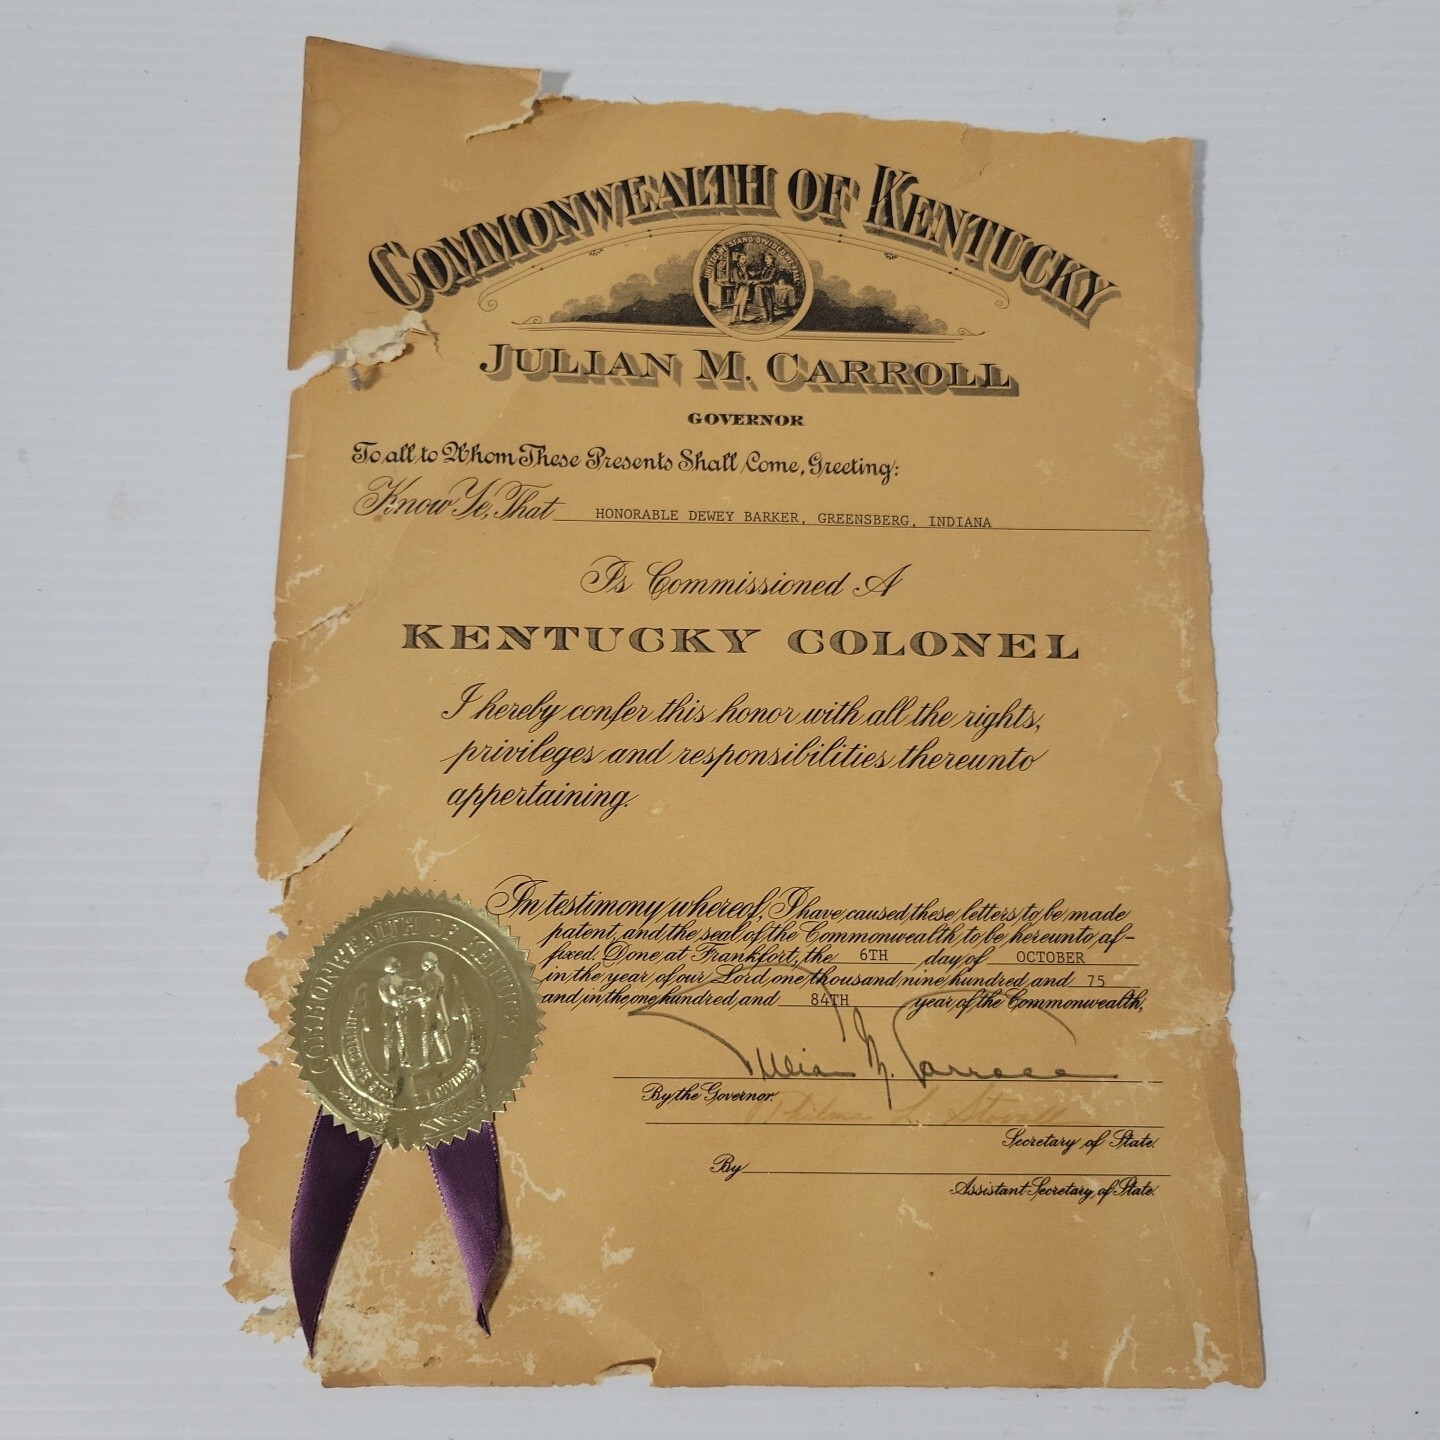 COMMONWEALTH OF KENTUCKY
UNITED WE STAND DIVIDED WE FALL
JULIAN M. CARROLL
GOVERNOR
To all to Whom These Presents Shall Come, Greeting:
Know Ye, That HONORABLE DEWEY BARKER, GREENSBERG, INDIANA
Is Commissioned A
KENTUCKY COLONEL
I hereby confer this honor with all the rights,
privileges and responsibilities thereunto
appertaining.
In testimony whereof, I have caused these letters to be made
patent, and the seal of the Commonwealth to be hereunto af-
fixed. Done at Frankfort, the 6TH day of OCTOBER
in the year of our Lord one thousand nine hundred and 75
and in the one hundred and 84TH year of the Commonwealth,
Julian M. Carroll
By the Governor.
Thelma L. Stovall
Secretary of State.
By
Assistant Secretary of State.
COMMONWEALTH OF KENTUCKY